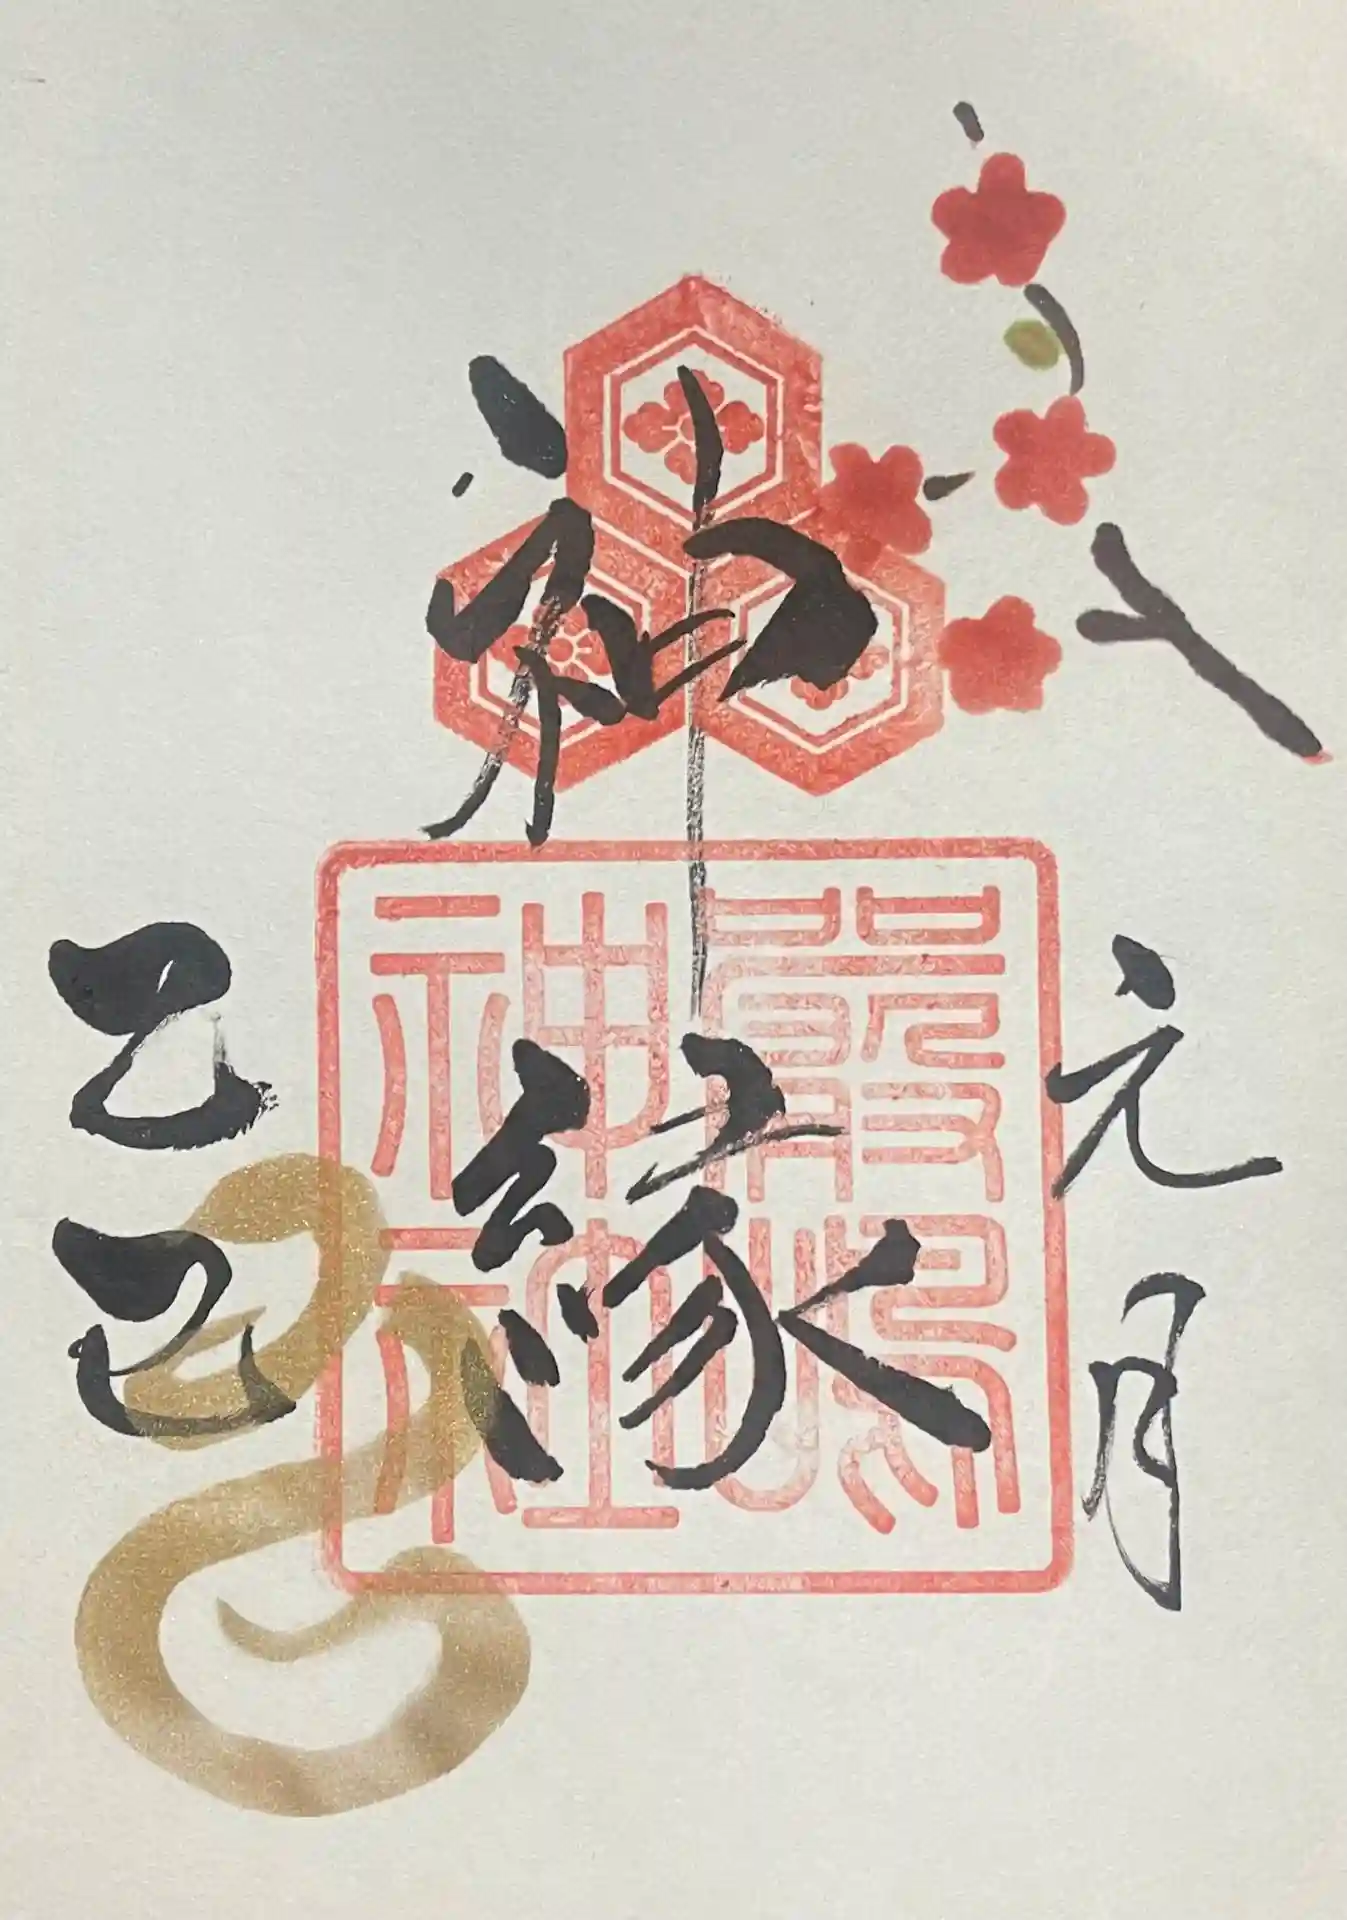 元月
神縁
乙巳
嚴島
神社